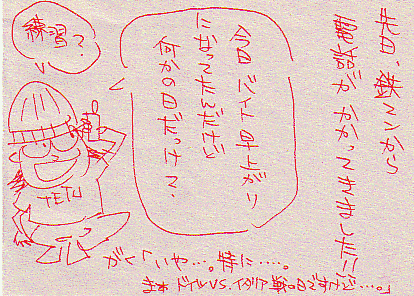 先日、鉄コンから
電話がかかってきました!!
今日バイト早上がり
になってたんだけど
何かの日だっけ?
練習?
TETU
がく「いや…。特に…。
まあ ドイツVS.イタリア戦の日ですけど…。」